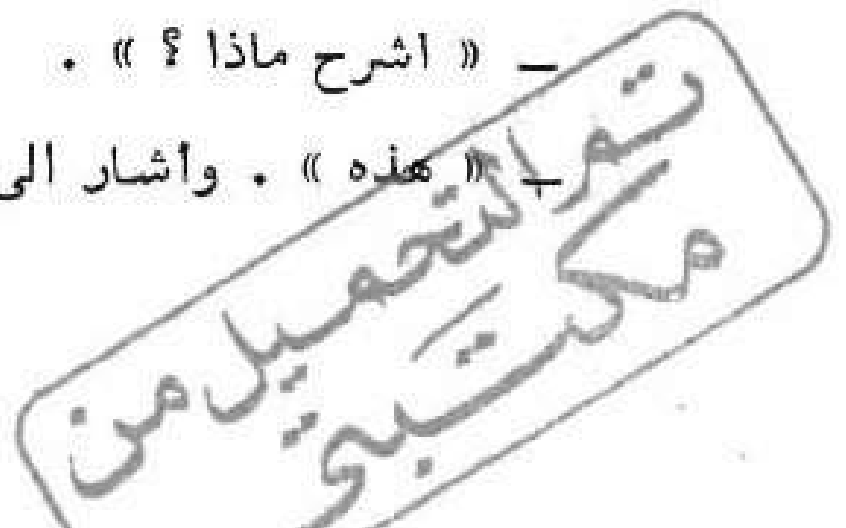 ـ « اشرح ماذا ؟ » .
ـ « هذه » . وأشار الى
تم التحميل من
مكتبتي